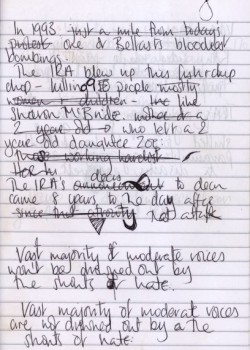 In 1993 just a mile from today's
protest one of Belfast's bloodiest
bombings.
The IRA blew up this fish + chip
shop - killing 9 people mostly
women + children - like
Sharon McBride. mother of a
2 year old → who left a 2
year old daughter Zoe.
working hardest
for
The IRA's announcement to decom
came 8 years to the day after
since that atrocity not after
Vast majority of moderate voices
won't be drowned out by
the shouts of hate.
Vast majority of moderate voices
are not drowned out by a the
shouts of hate.